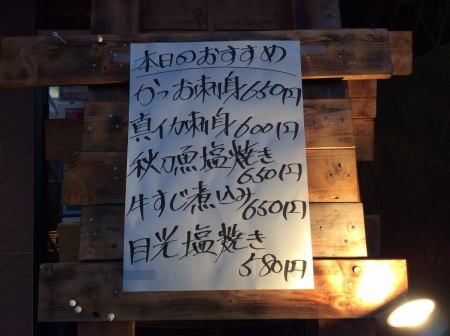 本日のおすすめ
かつお刺身650円
真イカ刺身600円
秋刀魚塩焼き
650円
牛すじ煮込み650円
目光塩焼き
580円